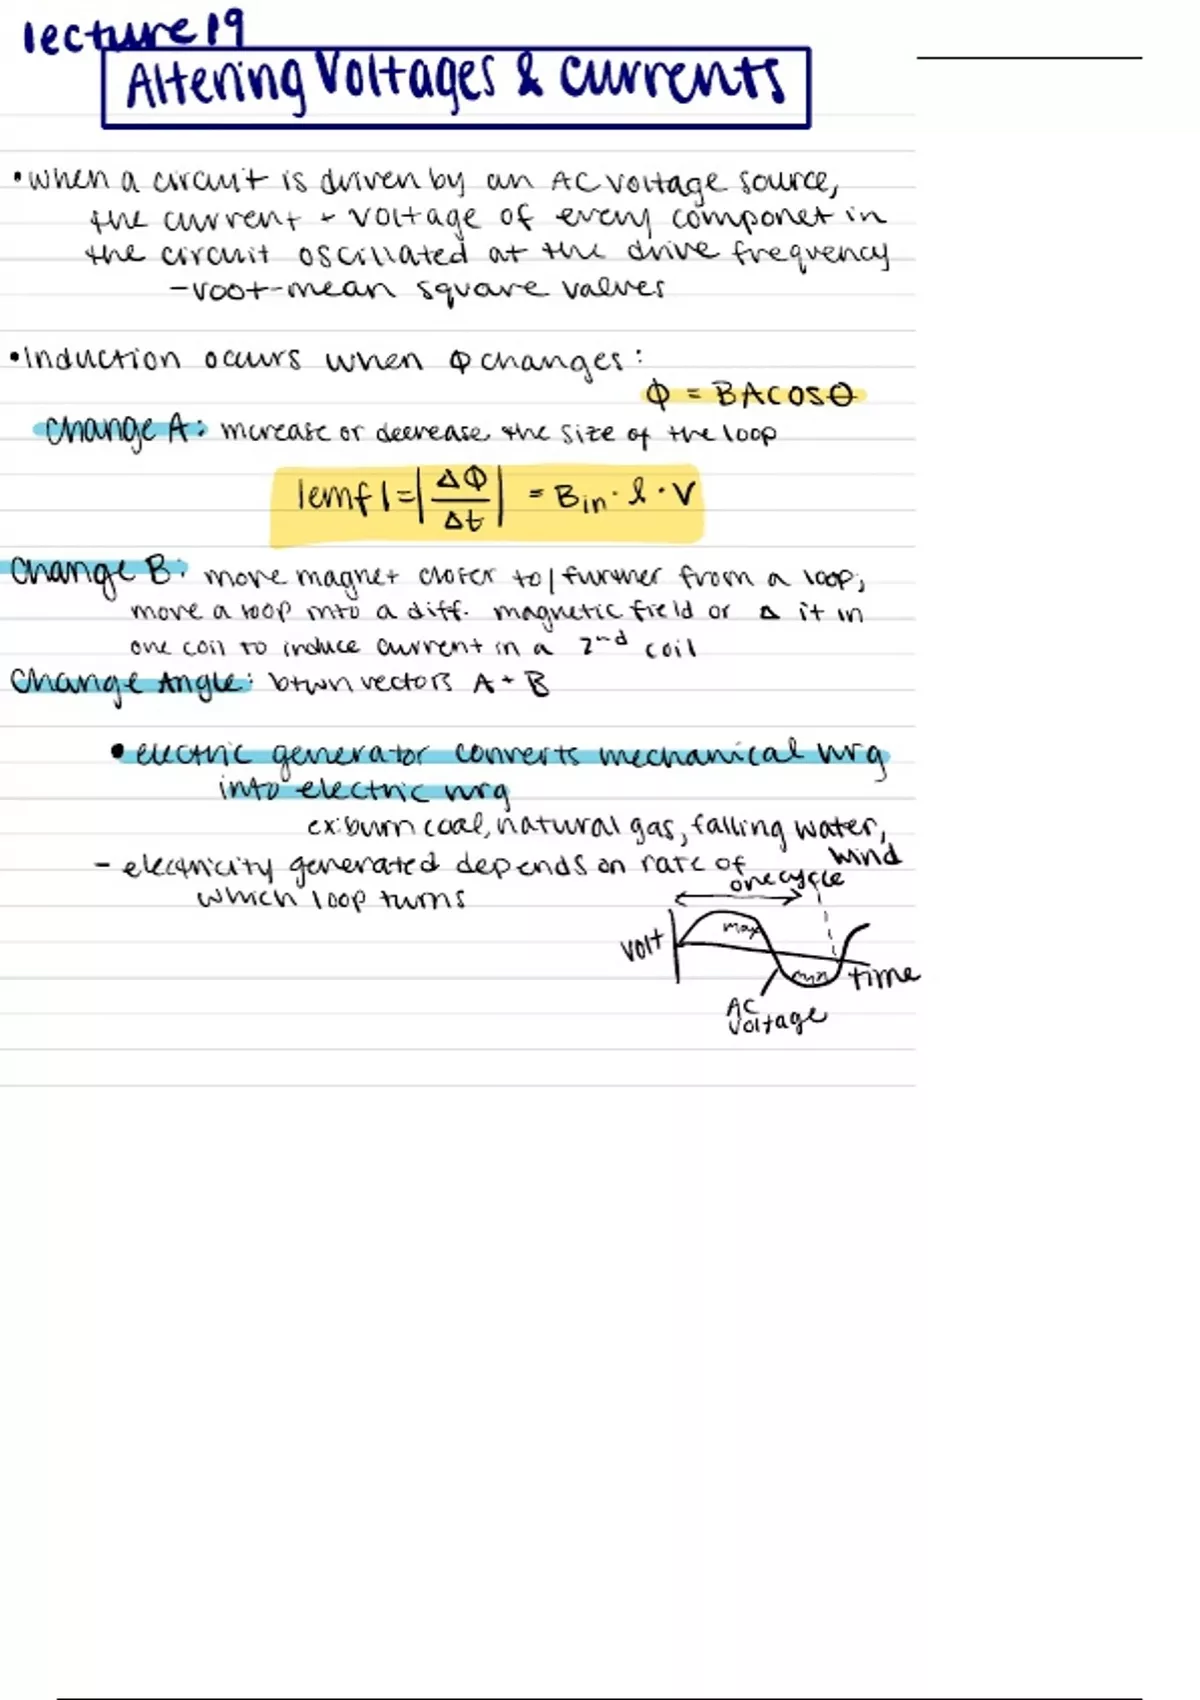 lecture 19
Altering Voltages & Currents
• when a circuit is driven by an AC voltage source,
the current + voltage of every componet in
the circuit oscillated at the drive frequency
- root-mean square valves
• Induction occurs when Φ changes:
Φ = BACOSθ
Change A: increase or decrease the size of the loop
|emf| = |ΔΦ/Δt| = Bin · l · v
Change B: move magnet closer to/further from a loop;
move a loop into a diff. magnetic field or Δ it in
one coil to induce current in a 2nd coil
Change Angle: btwn vectors A + B
• electric generator converts mechanical nrg
into electric nrg
ex: burn coal, natural gas, falling water,
wind
- electricity generated depends on rate of
which loop turns
one cycle
volt
max
min
time
AC
voltage